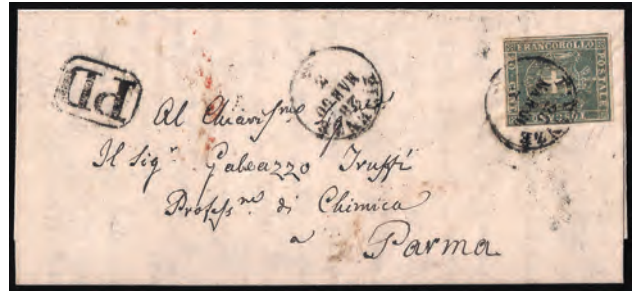 PD
FRANCOBOLLO
POSTALE
Al Chiariss.mo
Il Sig.r Galeazzo Truffi
Profess.re di Chimica
a Parma